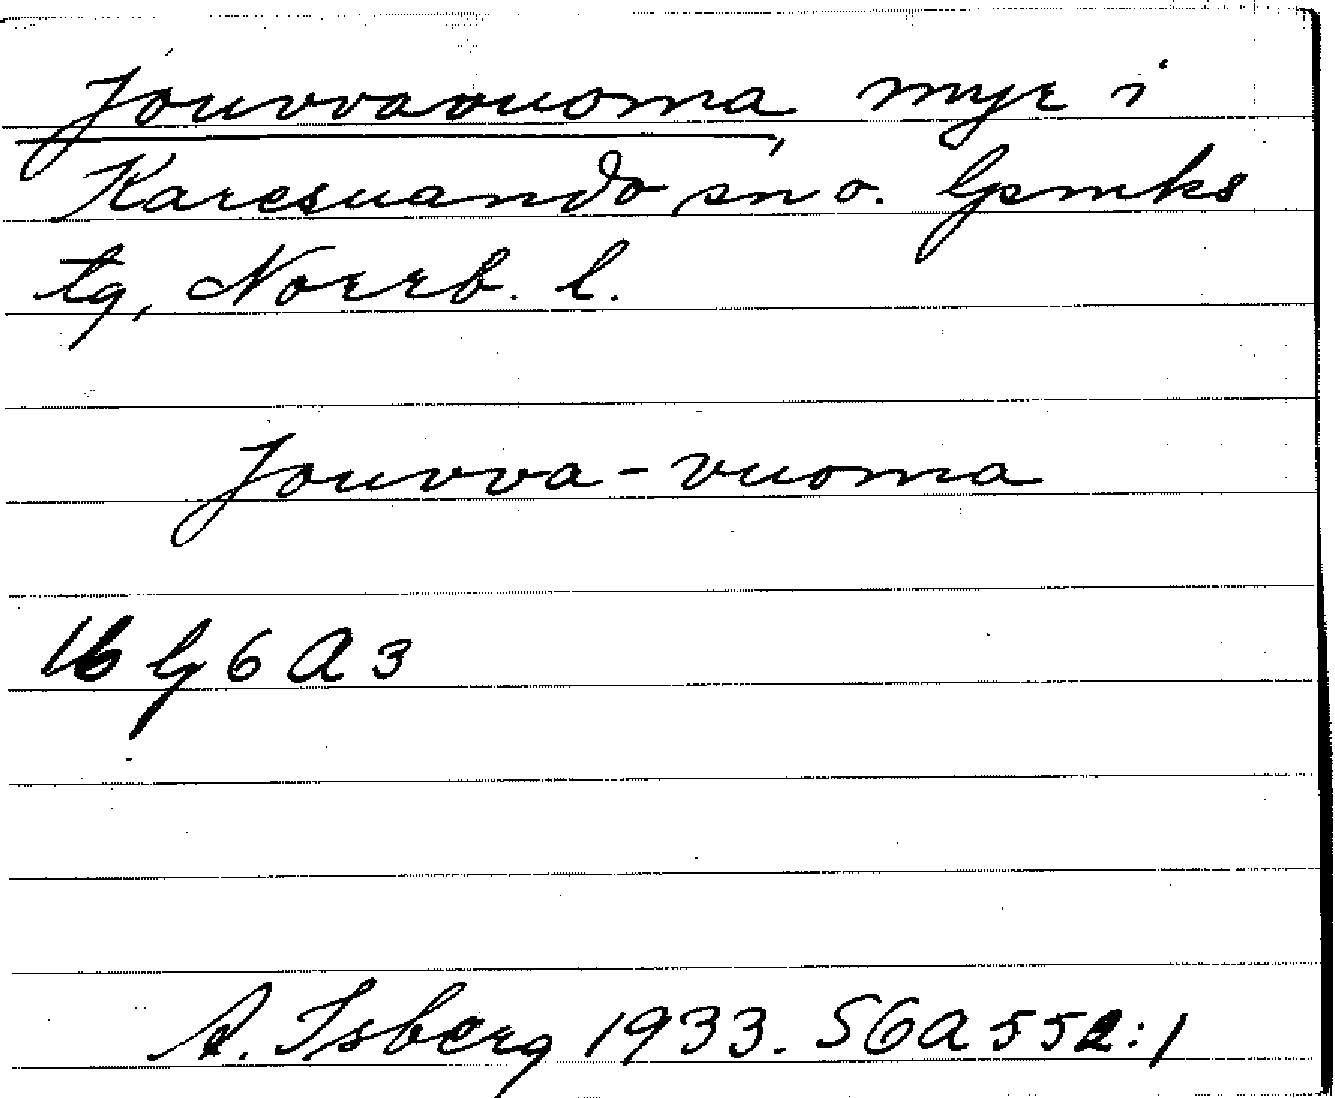 Jouvvavuoma, myr i
Karesuando sn o. lpmks
tg, Norrb. l.
Jouvva-vuoma
16 G 6 A 3
A. Isberg 1933. SGA 552:1